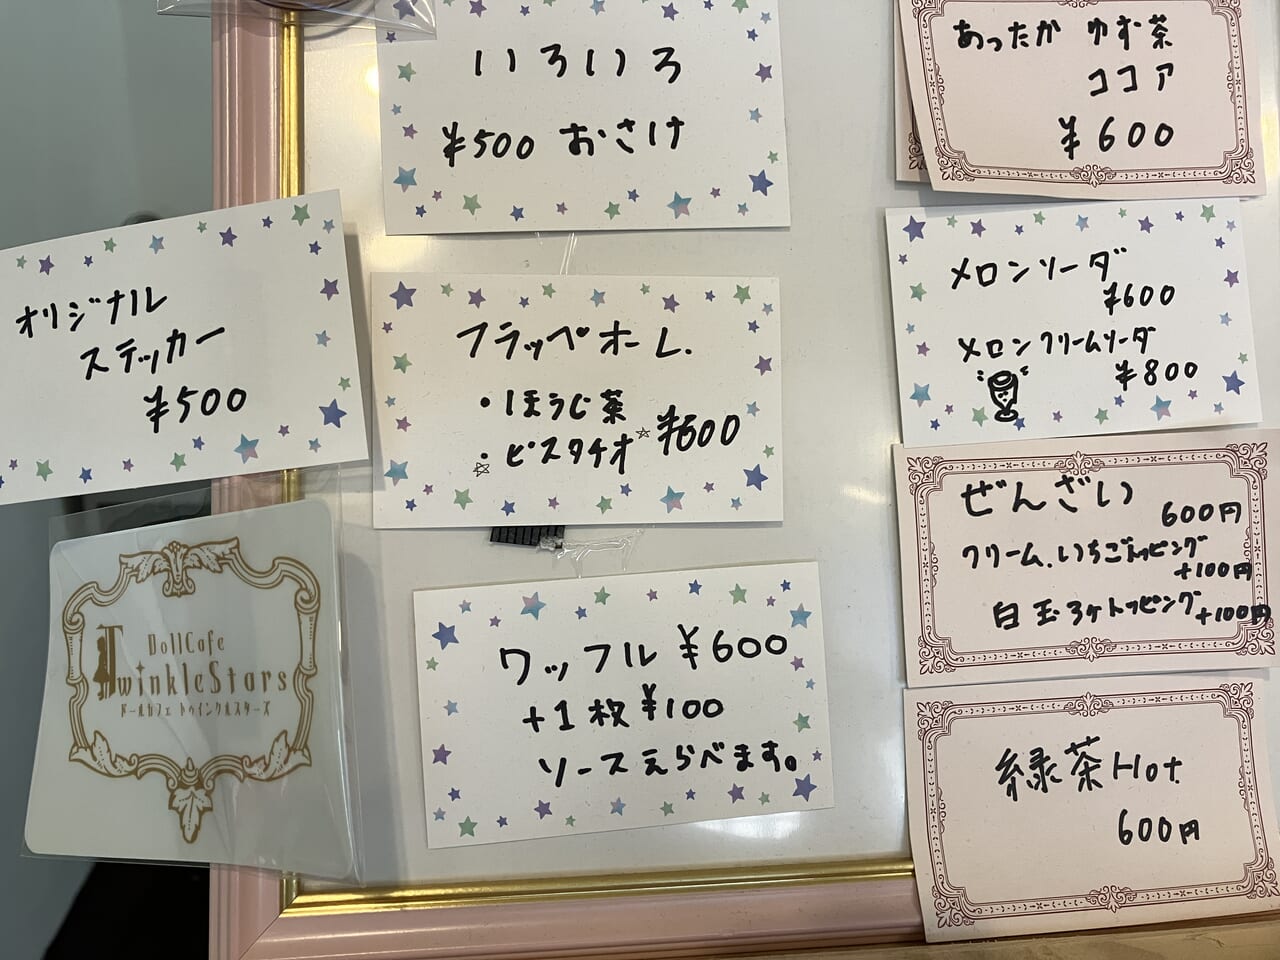 いろいろ
¥500 おさけ
あったか ゆず茶
ココア
¥600
オリジナル
ステッカー
¥500
フラッペホーL.
・ほうじ茶
・ピスタチオ ¥600
メロンソーダ
¥600
メロンクリームソーダ
¥800
ぜんざい
600円
クリーム.いちごトッピング
+100円
白玉3ケトッピング+100円
DollCafe
TwinkleStars
ドールカフェ トゥインクルスターズ
ワッフル ¥600
+1枚 ¥100
ソースえらべます。
緑茶Hot
600円